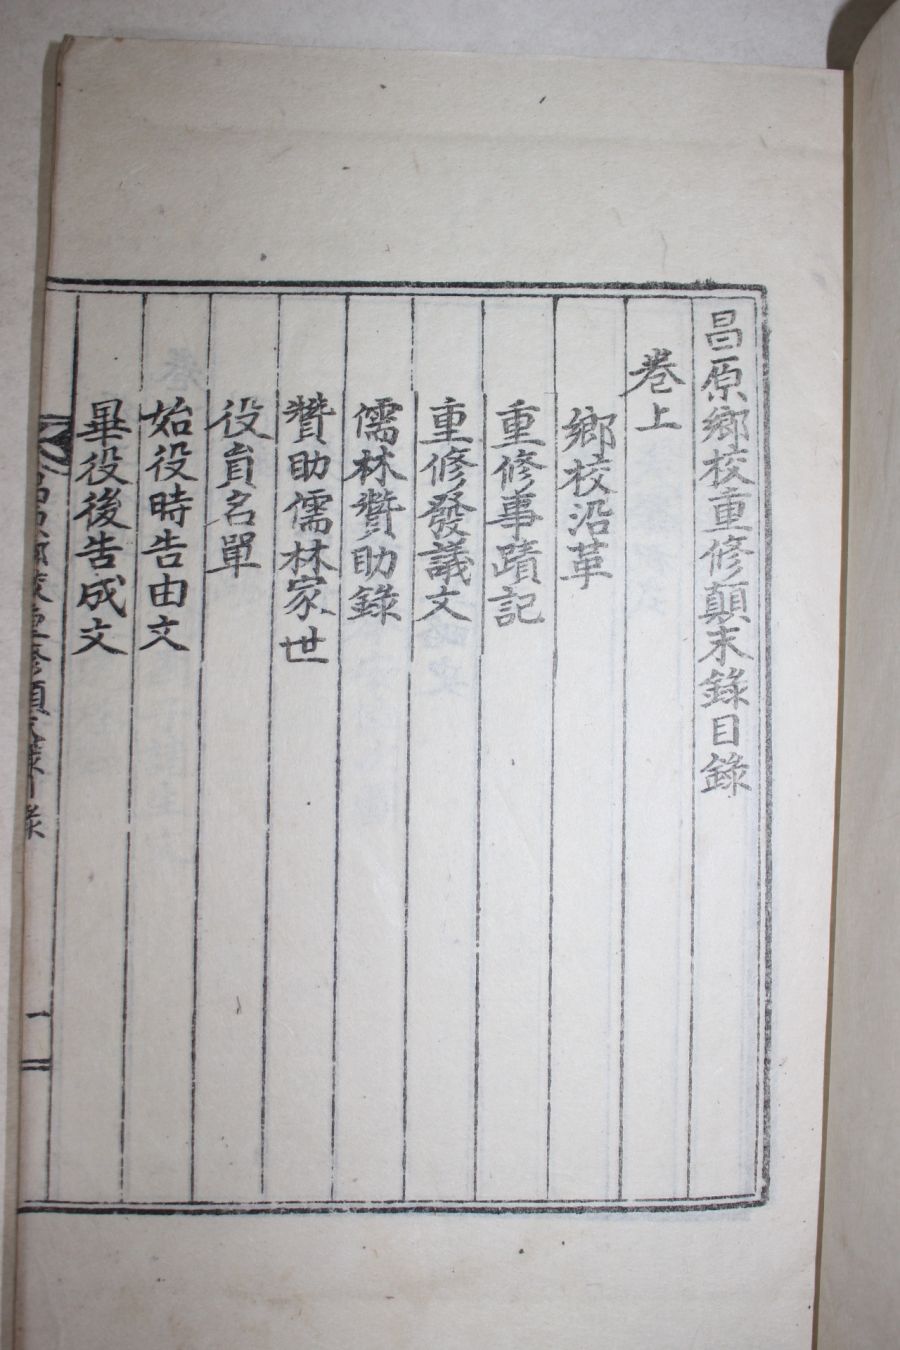 昌原鄉校重修顛末錄目錄
卷上
鄉校沿革
重修事蹟記
重修發議文
儒林贊助錄
贊助儒林家世
役員名單
始役時告由文
畢役後告成文
一